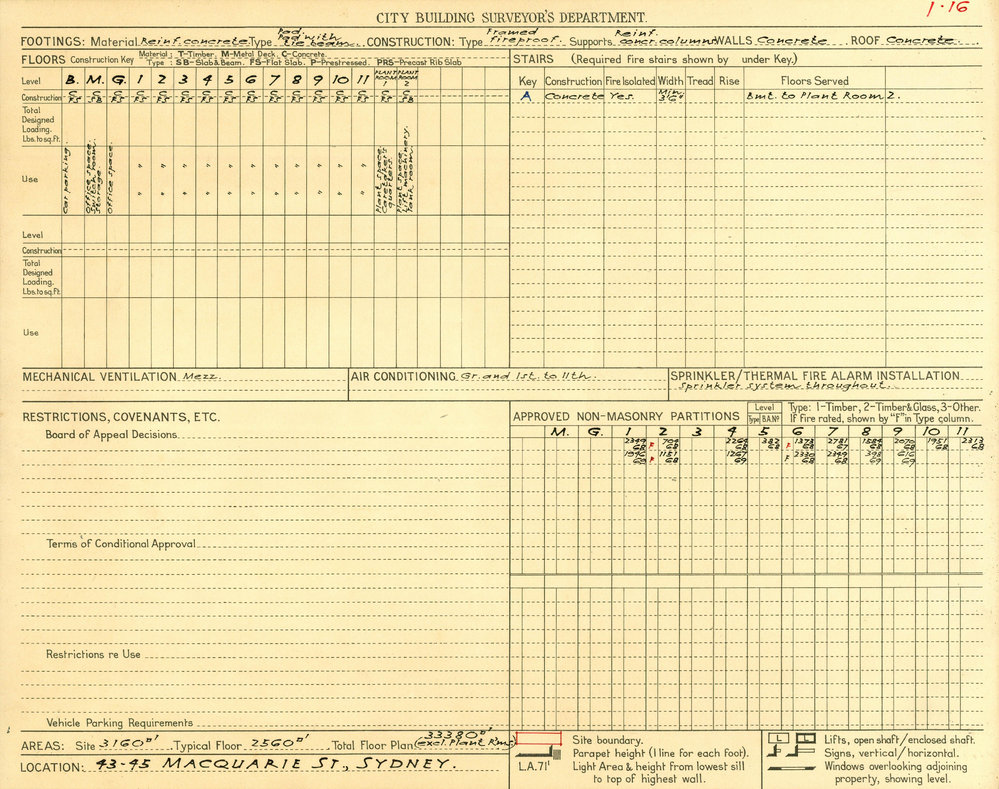 1·16
CITY BUILDING SURVEYOR'S DEPARTMENT.
FOOTINGS: Material Reinf. concrete Type Pad. Pad with tie beam. CONSTRUCTION: Type Framed fireproof. Supports Reinf. concr. columns WALLS Concrete ROOF Concrete
FLOORS Construction Key Material: T-Timber, M-Metal Deck, C-Concrete.
Type : SB-Slab & Beam. FS-Flat Slab. P-Prestressed. PRS-Precast Rib Slab
STAIRS (Required Fire stairs shown by under Key.)
Level B. M. G. 1 2 3 4 5 6 7 8 9 10 11 PLANT ROOM 1 PLANT ROOM 2
Key Construction Fire Isolated Width Tread Rise Floors Served
Construction C FS C SB C FS C FS C FS C FS C FS C FS C FS C FS C FS C FS C FS C FS C FS C SB
A Concrete Yes. Min. 3'6" Bmt. to Plant Room 2.
Total Designed Loading. Lbs. to sq. ft.
Use
Car parking.
Office space. Switch room. Storage.
Office space.
" " " " " " " " " " "
" " " " " " " " " " "
Plant space. Caretaker's quarters.
Plant space. Lift machinery. Tank room.
Level
Construction
Total Designed Loading. Lbs. to sq. ft.
Use
MECHANICAL VENTILATION Mezz.
AIR CONDITIONING Gr. and 1st. to 11th.
SPRINKLER/THERMAL FIRE ALARM INSTALLATION
Sprinkler system throughout.
RESTRICTIONS, COVENANTS, ETC.
APPROVED NON-MASONRY PARTITIONS Level Type B.A.Nº Type: 1-Timber, 2-Timber & Glass, 3-Other.
If Fire rated, shown by "F" in Type column.
Board of Appeal Decisions
M. G. 1 2 3 4 5 6 7 8 9 10 11
2349 68 F 704 68 2264 68 382 68 F 1373 68 2781 67 1584 68 2070 68 1951 68 2313 68
1946 69 F 1151 68 1267 69 F 2330 68 2349 68 393 69 616 69
Terms of Conditional Approval
Restrictions re Use
Vehicle Parking Requirements
AREAS: Site 3160□' Typical Floor 2560□' Total Floor Plan 33380□' (excl. Plant R'ms)
LOCATION: 43-45 MACQUARIE ST., SYDNEY.
Site boundary.
Parapet height (1 line for each foot).
L.A.71' Light Area & height from lowest sill
to top of highest wall.
L L Lifts, open shaft/enclosed shaft.
Signs, vertical/horizontal.
Windows overlooking adjoining
property, showing level.